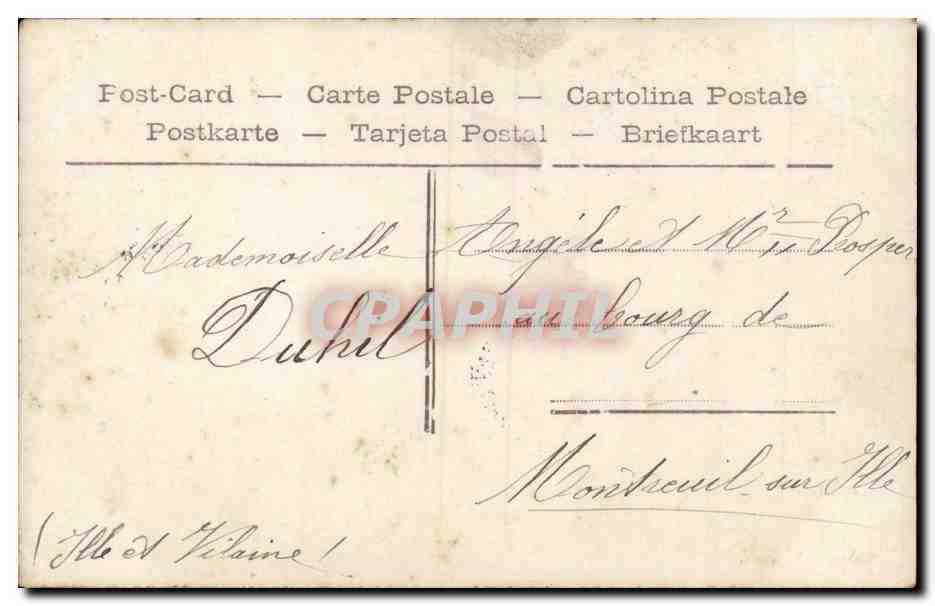 Post-Card — Carte Postale — Cartolina Postale
Postkarte — Tarjeta Postal — Briefkaart
Mademoiselle Angèle et Mr Posper
Duhil au bourg de
CPAPHIL
Montreuil sur Ille
(Ille et Vilaine)